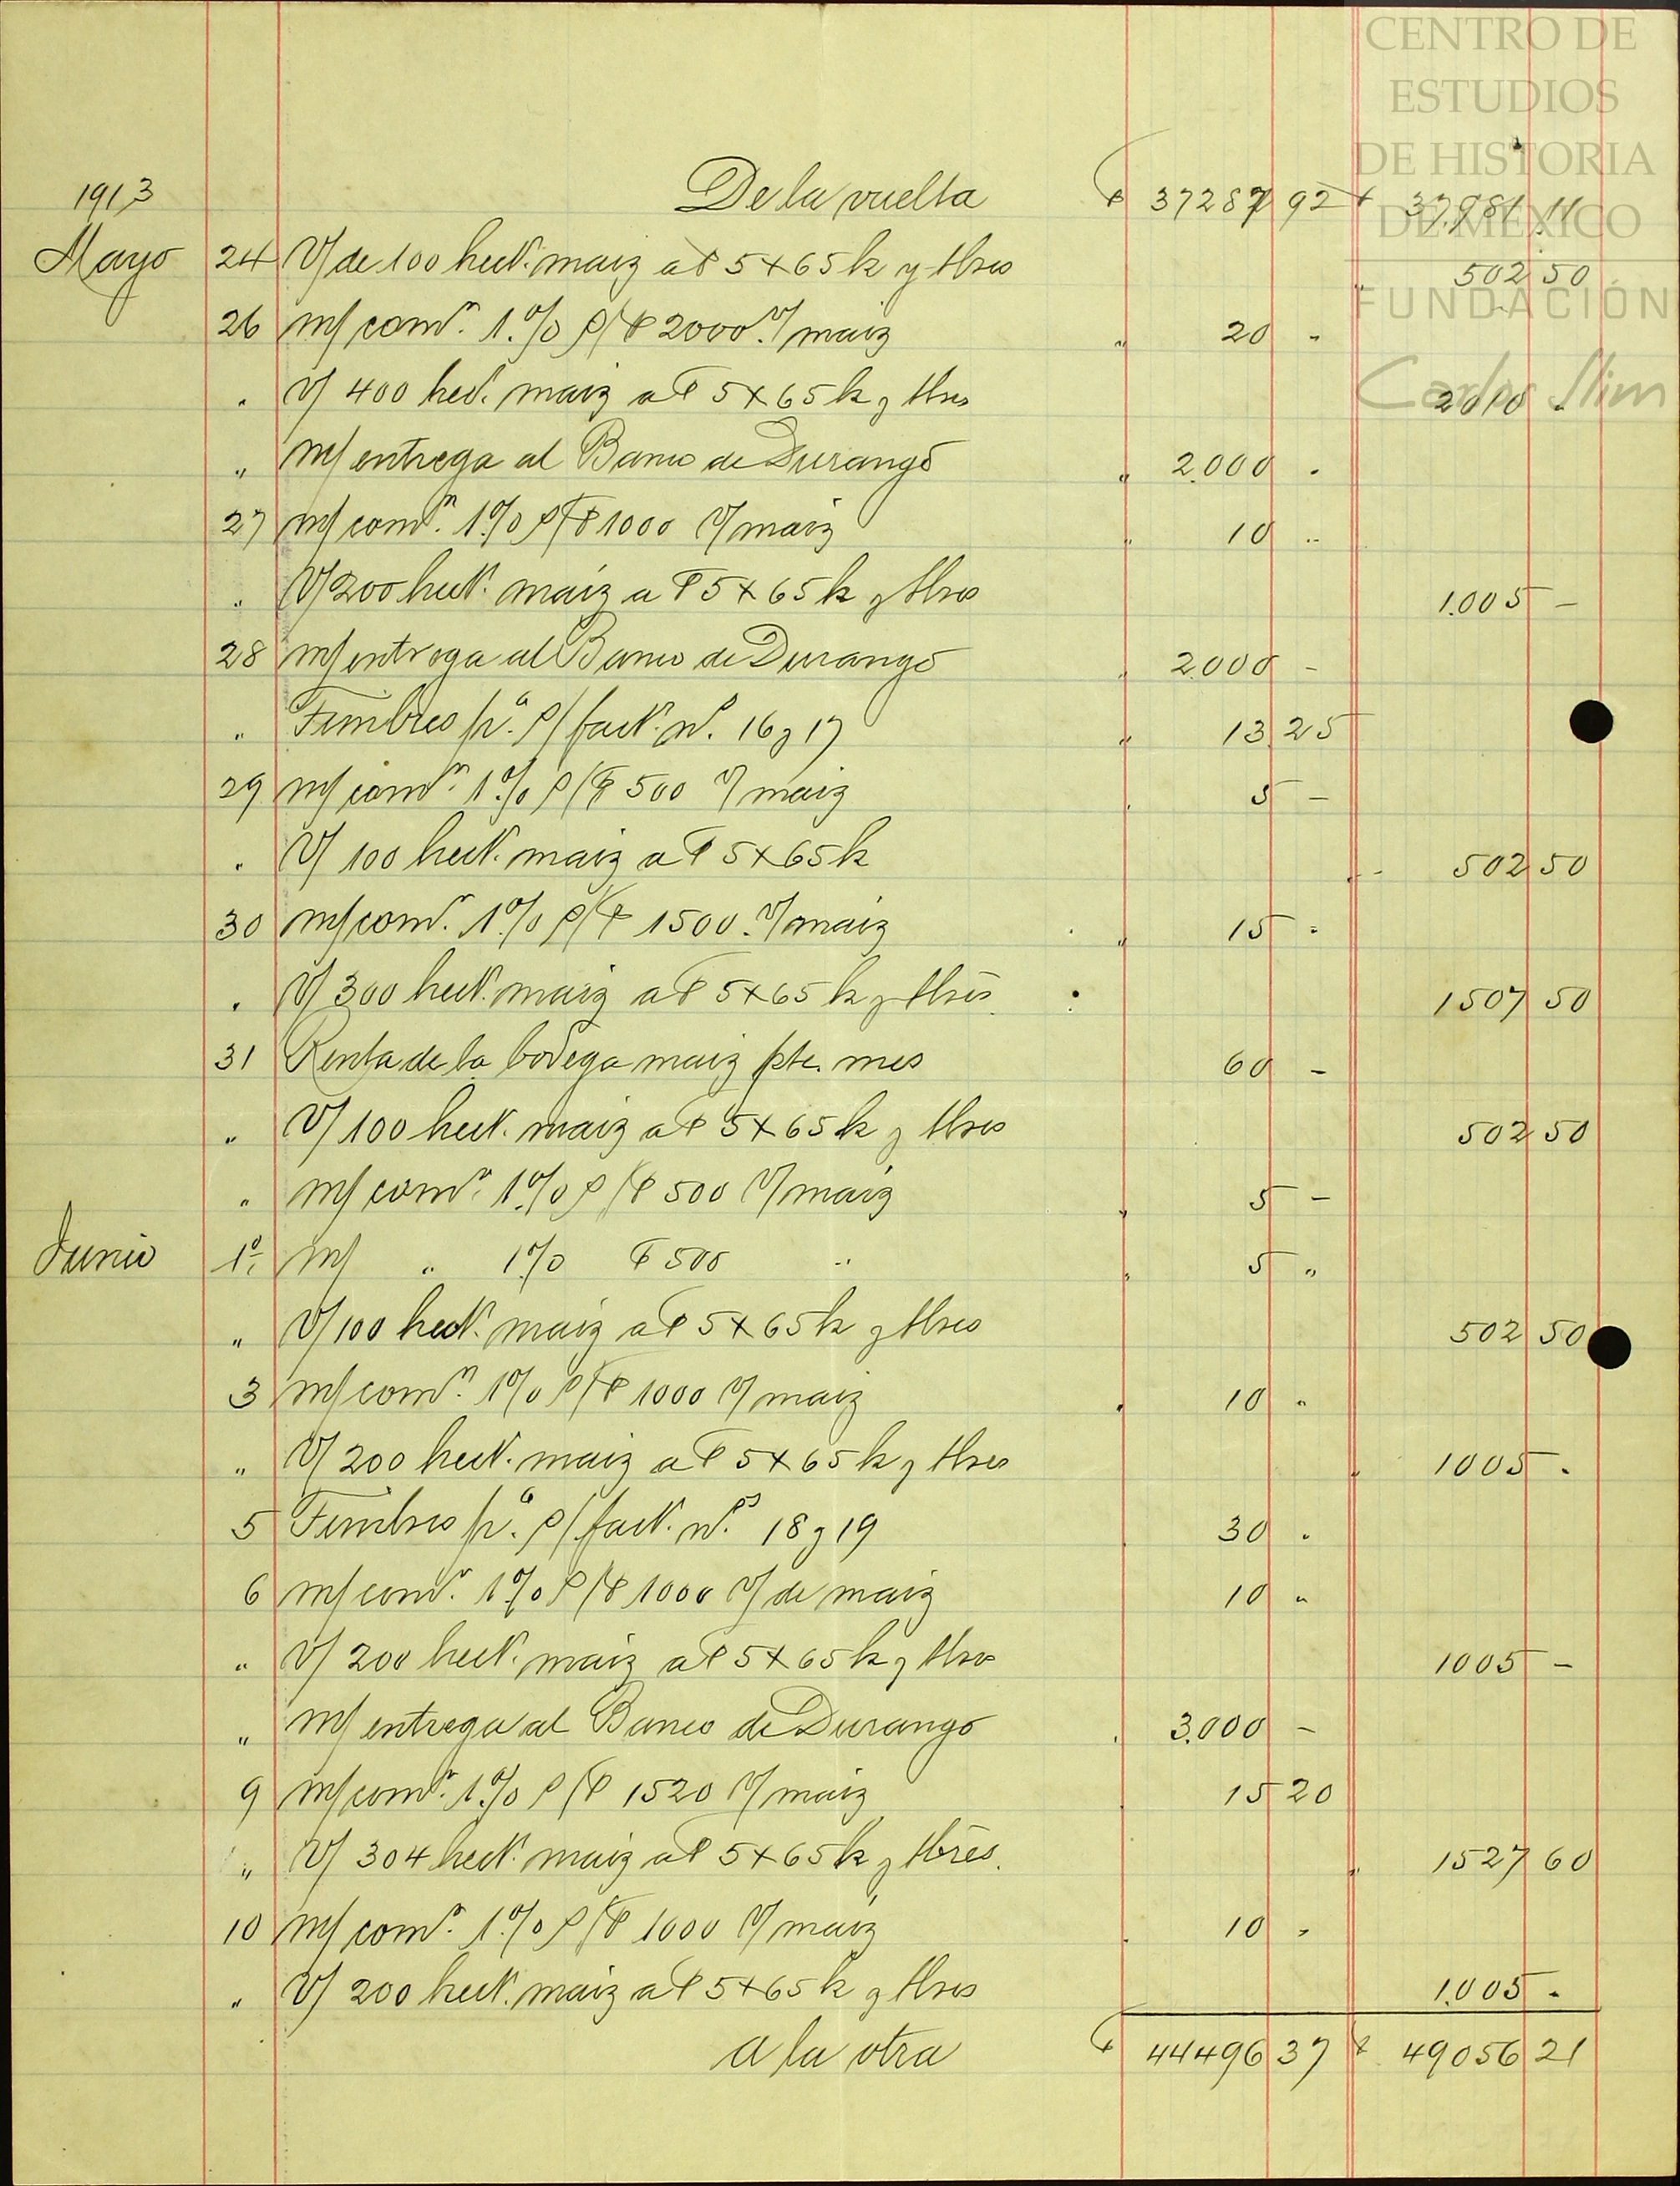 CENTRO DE
ESTUDIOS
DE HISTORIA
DE MÉXICO
FUNDACIÓN
Carlos Slim
1913 De la vuelta $ 37287 92 $ 37,981 11
Mayo 24 V/ de 100 hect. maiz a $ 5 x 65 k y tbres " 502 50
26 m/ comn. 1.% s/ $ 2000. v/ maiz " 20 -
" V/ 400 hect. maiz a $ 5 x 65 k y tbres 2010 -
" m/ entrega al Banco de Durango " 2.000 -
27 m/ comn. 1.% s/ $ 1000 v/ maiz " 10 "
" V/ 200 hect. maiz a $ 5 x 65 k y tbres 1.005 -
28 m/ entrega al Banco de Durango " 2000 -
" Timbres pa. s/ fact. no. 16 y 17 " 13 25
29 m/ comn. 1.% s/ $ 500 v/ maiz " 5 -
" V/ 100 hect. maiz a $ 5 x 65 k " 502 50
30 m/ comn. 1.% s/ $ 1500. v/ maiz " 15 -
" V/ 300 hect. maiz a $ 5 x 65 k y tbres. 1507 50
31 Renta de la bodega maiz pte. mes 60 -
" V/ 100 hect. maiz a $ 5 x 65 k y tbres 502 50
" m/ comn. 1.% s/ $ 500 v/ maiz " 5 -
Junio 1o. m/ " 1.% $ 500 " " 5 "
" V/ 100 hect. maiz a $ 5 x 65 k y tbres 502 50
3 m/ comn. 1% s/ $ 1000 v/ maiz " 10 "
" V/ 200 hect. maiz a $ 5 x 65 k y tbres " 1005 -
5 Timbres pa. s/ fact. nos. 18 y 19 30 -
6 m/ comn. 1.% s/ $ 1000 v/ de maiz 10 "
" V/ 200 hect. maiz a $ 5 x 65 k y tbres 1005 -
" m/ entrega al Banco de Durango " 3.000 -
9 m/ comn. 1.% s/ $ 1520 v/ maiz 15 20
" V/ 304 hect. maiz a $ 5 x 65 k y tbres. " 1527 60
10 m/ comn. 1.% s/ $ 1000 v/ maiz " 10 -
" V/ 200 hect. maiz a $ 5 x 65 k y tbres 1.005 -
a la otra $ 44496 37 $ 49056 21